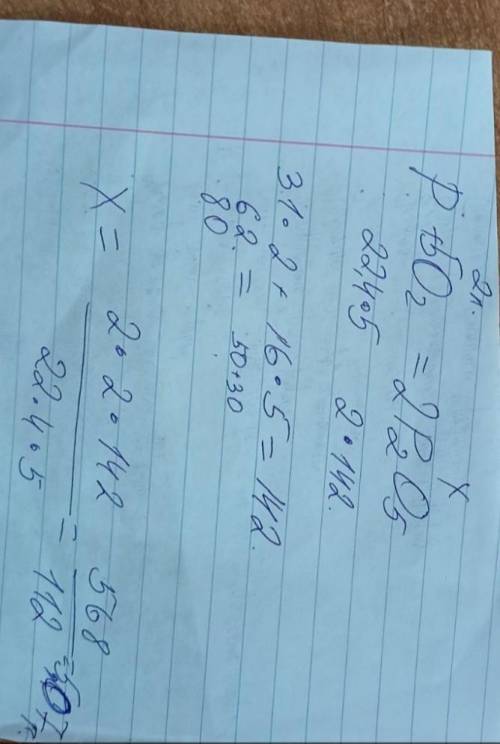 2л. x
P + 5O₂ = 2P₂O₅
22,4·5 2·142.
31·2 + 16·5 = 142.
62 = 50+30
80
X = 2·2·142 / 22.4·5 = 568 / 112